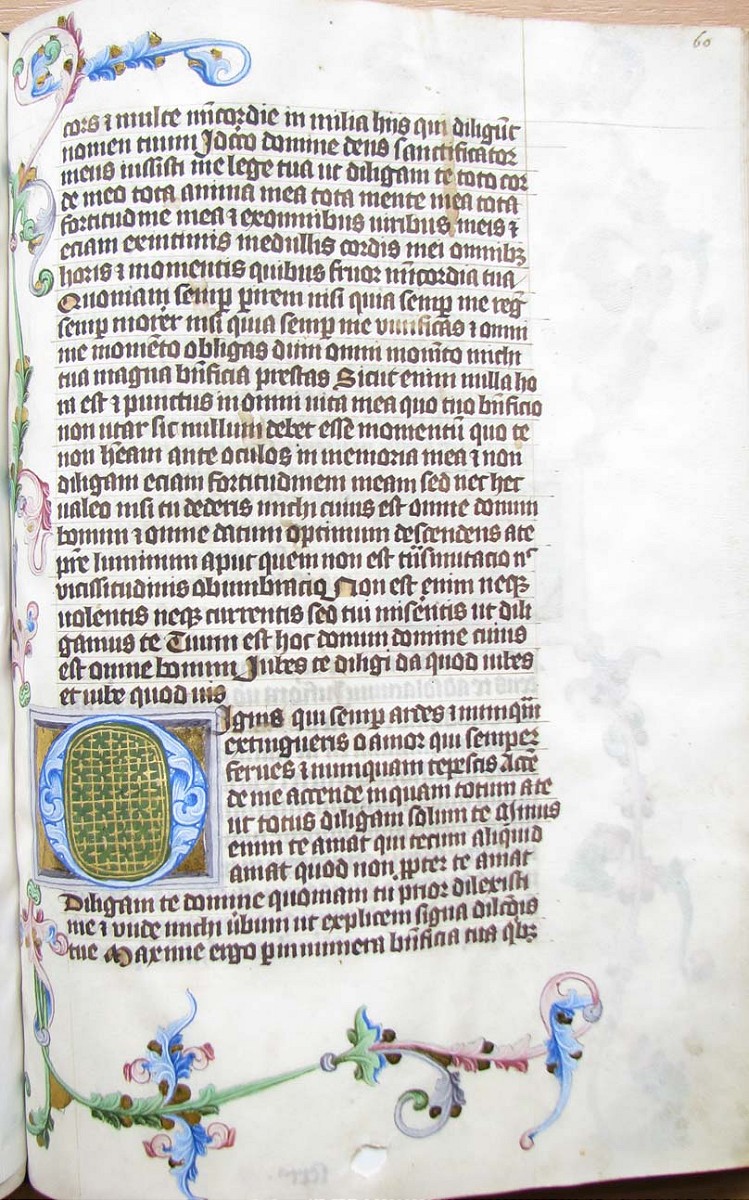 60
cors ⁊ multe mĩcordie in milia hijs qui diligũt
nomen tuum Idcĩo domine deus sanctificator
meus iussisti me lege tua ut diligam te toto cor
de meo tota anima mea tota mente mea tota
fortitudine mea ⁊ ex omnibus uiribus meis ⁊
eciam ex intimis medullis cordis mei omnibꝫ
horis ⁊ momentis quibus fruor mĩcordia tua
Quoniam semꝑ ꝑirem nisi quia semꝑ me reg̃
semꝑ morer̃ nisi quia semꝑ me viuificas ⁊ omni
me momẽto obligas dum omni momẽto michi
tua magna bñficia prestas Sicut enim nulla ho
ra est ⁊ punctus in omni uita mea quo tuo bñficio
non utar sic nullum debet esse momentũ quo te
non hẽam ante oculos in memoria mea ⁊ non
diligam eciam fortitudinem meam sed nec hec
ualeo nisi tu dederis michi cuius est omne donum
bonum ⁊ omne datum optimum descendens a te
pr̃e luminum aput quem non est tñsmutacio nᶜ
vicissitudinis obumbracio Non est enim neqꝫ
uolentis neqꝫ currentis sed tui miserẽtis ut dili
gamus te Tuum est hoc donum domine cuius
est omne bonum Iubes te diligi da quod iubes
et iube quod uis
O Ignis qui semꝑ ardes ⁊ numqũ
extingueris o amor qui semper
ferues ⁊ numquam tepescis Accẽ
de me accende inquam totum a te
ut totus diligam solum te Minus
enim te amat qui tecum aliquid
amat quod non ꝓpter te amat
Diligam te domine quoniam tu prior dilexisti
me ⁊ vnde michi ũbum ut explicem signa dilc̃õis
tue Maxime ergo ꝑ innumera bñficia tua qᵇꝫ